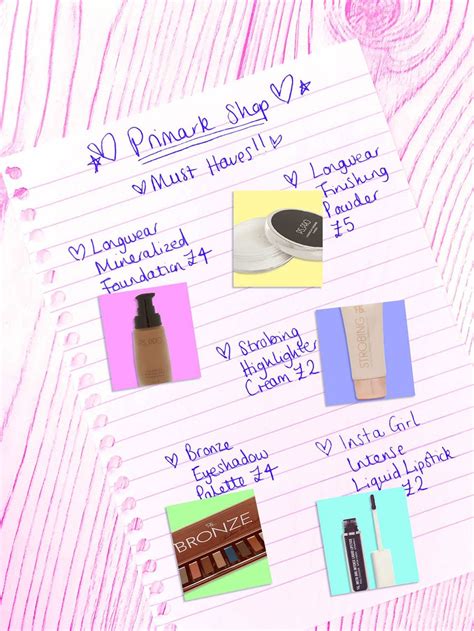 Primark Shop
Must Haves!!
Longwear
Finishing
Powder
£5
Longwear
Mineralized
Foundation £4
PS... PRO
Strobing
Highlighter
Cream £2
STROBING
Bronze
Eyeshadow
Palette £4
BRONZE
Insta Girl
Intense
Liquid Lipstick
£2